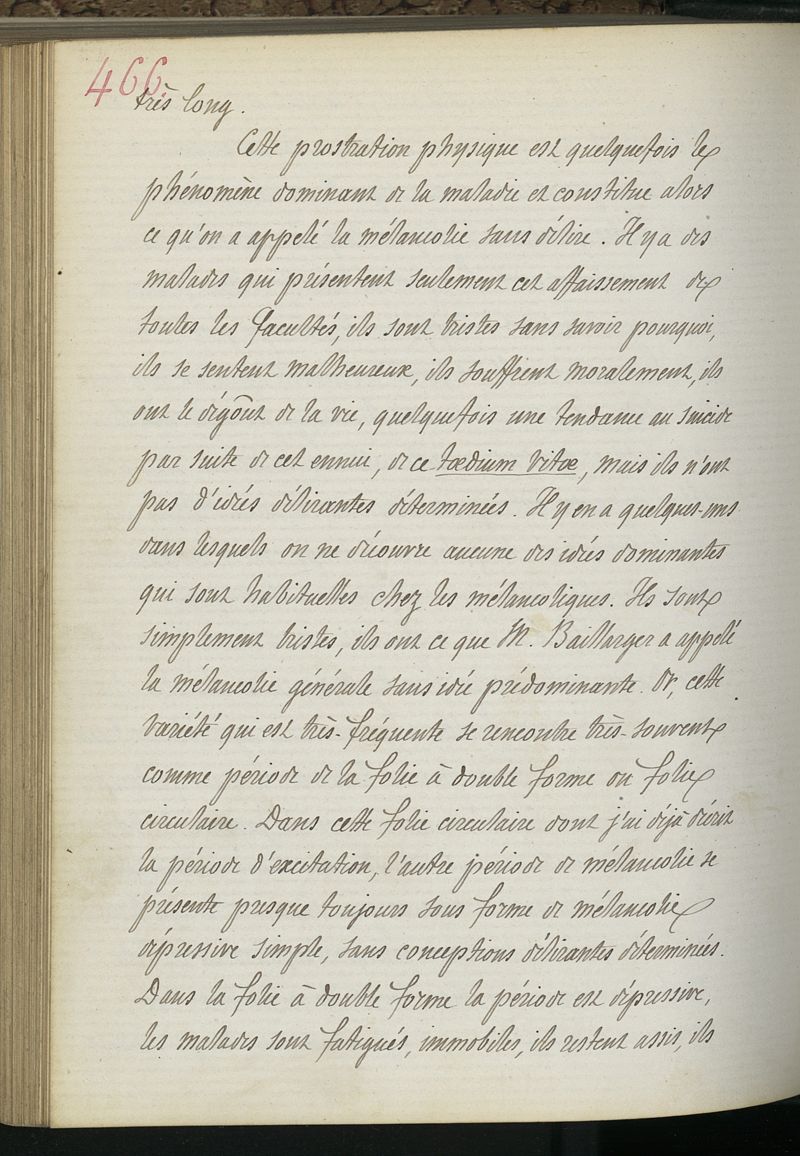 466.
très long.
Cette prostration physique est quelquefois le
phénomène dominant de la maladie et constitue alors
ce qu'on a appelé la mélancolie sans délire. Il y a des
malades qui présentent seulement cet affaissement de
toutes les facultés, ils sont tristes sans savoir pourquoi,
ils se sentent malheureux, ils souffrent moralement, ils
ont le dégoût de la vie, quelquefois une tendance au suicide
par suite de cet ennui, de ce tœdium vitœ, mais ils n'ont
pas d'idées délirantes déterminées. Il y en a quelques-uns
dans lesquels on ne découvre aucune des idées dominantes
qui sont habituelles chez les mélancoliques. Ils sont
simplement tristes, ils ont ce que M. Baillarger a appelé
la mélancolie générale sans idée prédominante. Or, cette
variété qui est très-fréquente se rencontre très-souvent
comme période de la folie à double forme ou folie
circulaire. Dans cette folie circulaire dont j'ai déjà décrit
la période d'excitation, l'autre période de mélancolie se
présente presque toujours sous forme de mélancolie
dépressive simple, sans conceptions délirantes déterminées.
Dans la folie à double forme la période est dépressive,
les malades sont fatigués, immobiles, ils restent assis, ils